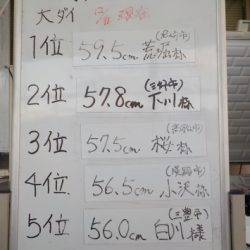 大ダイ
1位 59.5cm 荒堀様
2位 57.8cm 下川様
3位 57.5cm 桜様
4位 56.5cm 小沢様
5位 (三豊市)
56.0cm 白川様